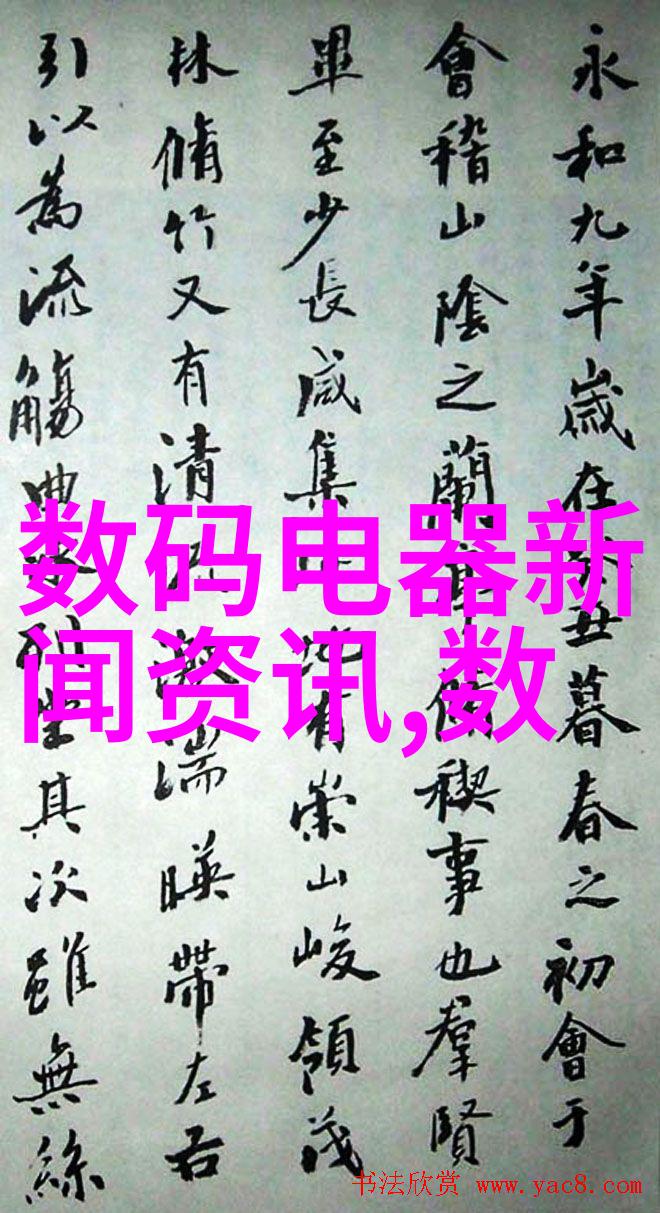 永和九年歲在癸丑暮春之初會于
會稽山陰之蘭亭脩禊事也羣賢
畢至少長咸集此地有崇山峻領茂
林脩竹又有清流激湍暎帶左右
引以為流觴曲水列坐其次雖無絲
数码电器新
闻资讯,数
书法欣赏 www.yac8.com